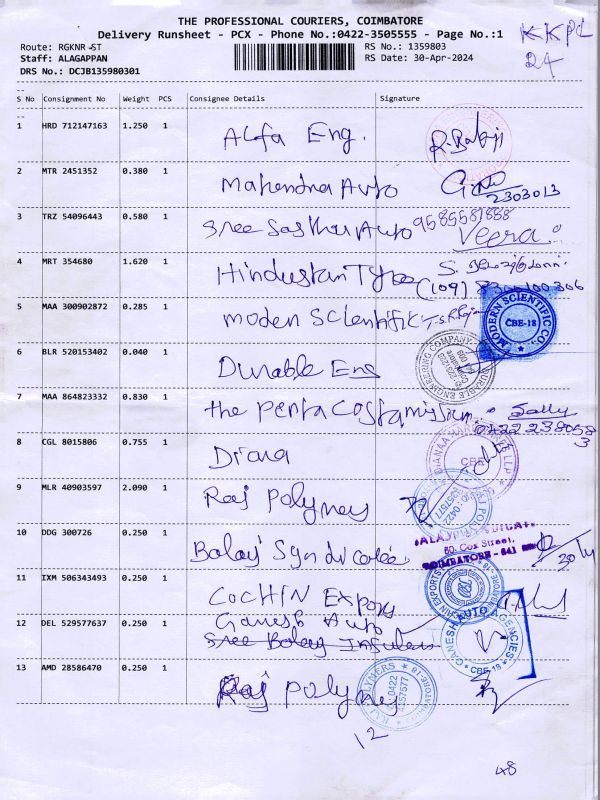 THE PROFESSIONAL COURIERS, COIMBATORE
Delivery Runsheet - PCX - Phone No.:0422-3505555 - Page No.:1
KKPL
24
Route: RGKNR-ST
RS No.: 1359803
Staff: ALAGAPPAN
RS Date: 30-Apr-2024
DRS No.: DCJB135980301
S No Consignment No Weight PCS Consignee Details Signature
1 HRD 712147163 1.250 1 Alfa Eng. R. Balaji
2 MTR 2451352 0.380 1 Mahendra Auto
2303013
3 TRZ 54096443 0.580 1 Sree Sastha Auto 9585581888
Veera
4 MRT 354680 1.620 1 Hindustan Tyre S.
(109)
5 MAA 300902872 0.285 1 Moden Scientific
MODERN SCIENTIFIC CO. CBE-18
6 BLR 520153402 0.040 1 Durable Eng
DURABLE ENGINEERING COMPANY
7 MAA 864823332 0.830 1 the Penta Costa mission Sally
0422 238058
3
8 CGL 8015806 0.755 1 Diana
LLP CBE
9 MLR 40903597 2.090 1 Raj Polymers
0422 4357577
10 DDG 300726 0.250 1 Balaji Syndicate
60, Cox Street,
COIMBATORE - 641
30
11 IXM 506343493 0.250 1 Cochin Expors
12 DEL 529577637 0.250 1 Ganesh Auto
Sree Balaji
GANESH AUTO AGENCIES CBE-18
13 AMD 28586470 0.250 1 Raj Polymers
RAJ POLYMERS 0422 4357577
12
48